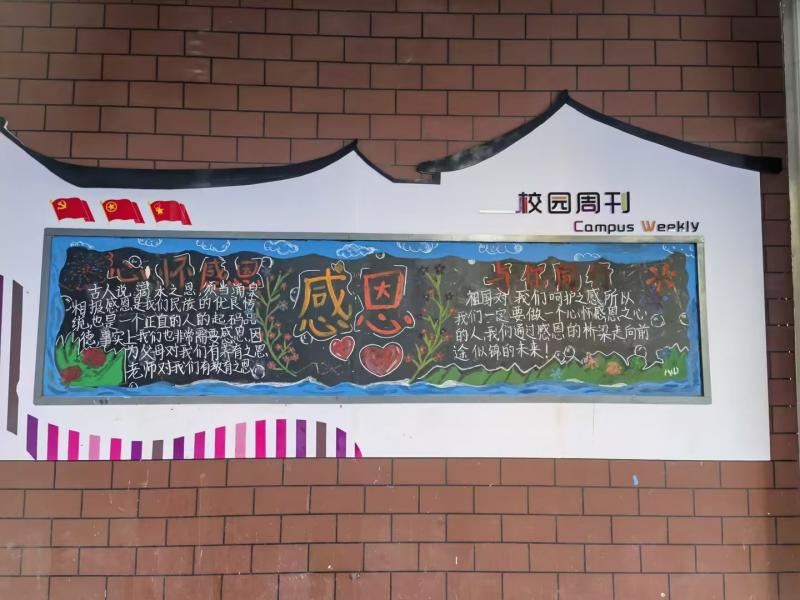 校园周刊
Campus Weekly
心怀感恩
古人说:滴水之恩,须当涌泉
相报感恩是我们民族的优良传
统,也是一个正直的人的起码品
德,事实上我们也非常需要感恩,因
为父母对我们有养育之恩
老师对我们有教育之恩
感恩
与你同行
祖国对我们呵护之感所以
我们一定要做一个心怀感恩之心
的人,我们通过感恩的桥梁走向前
途似锦的未来!